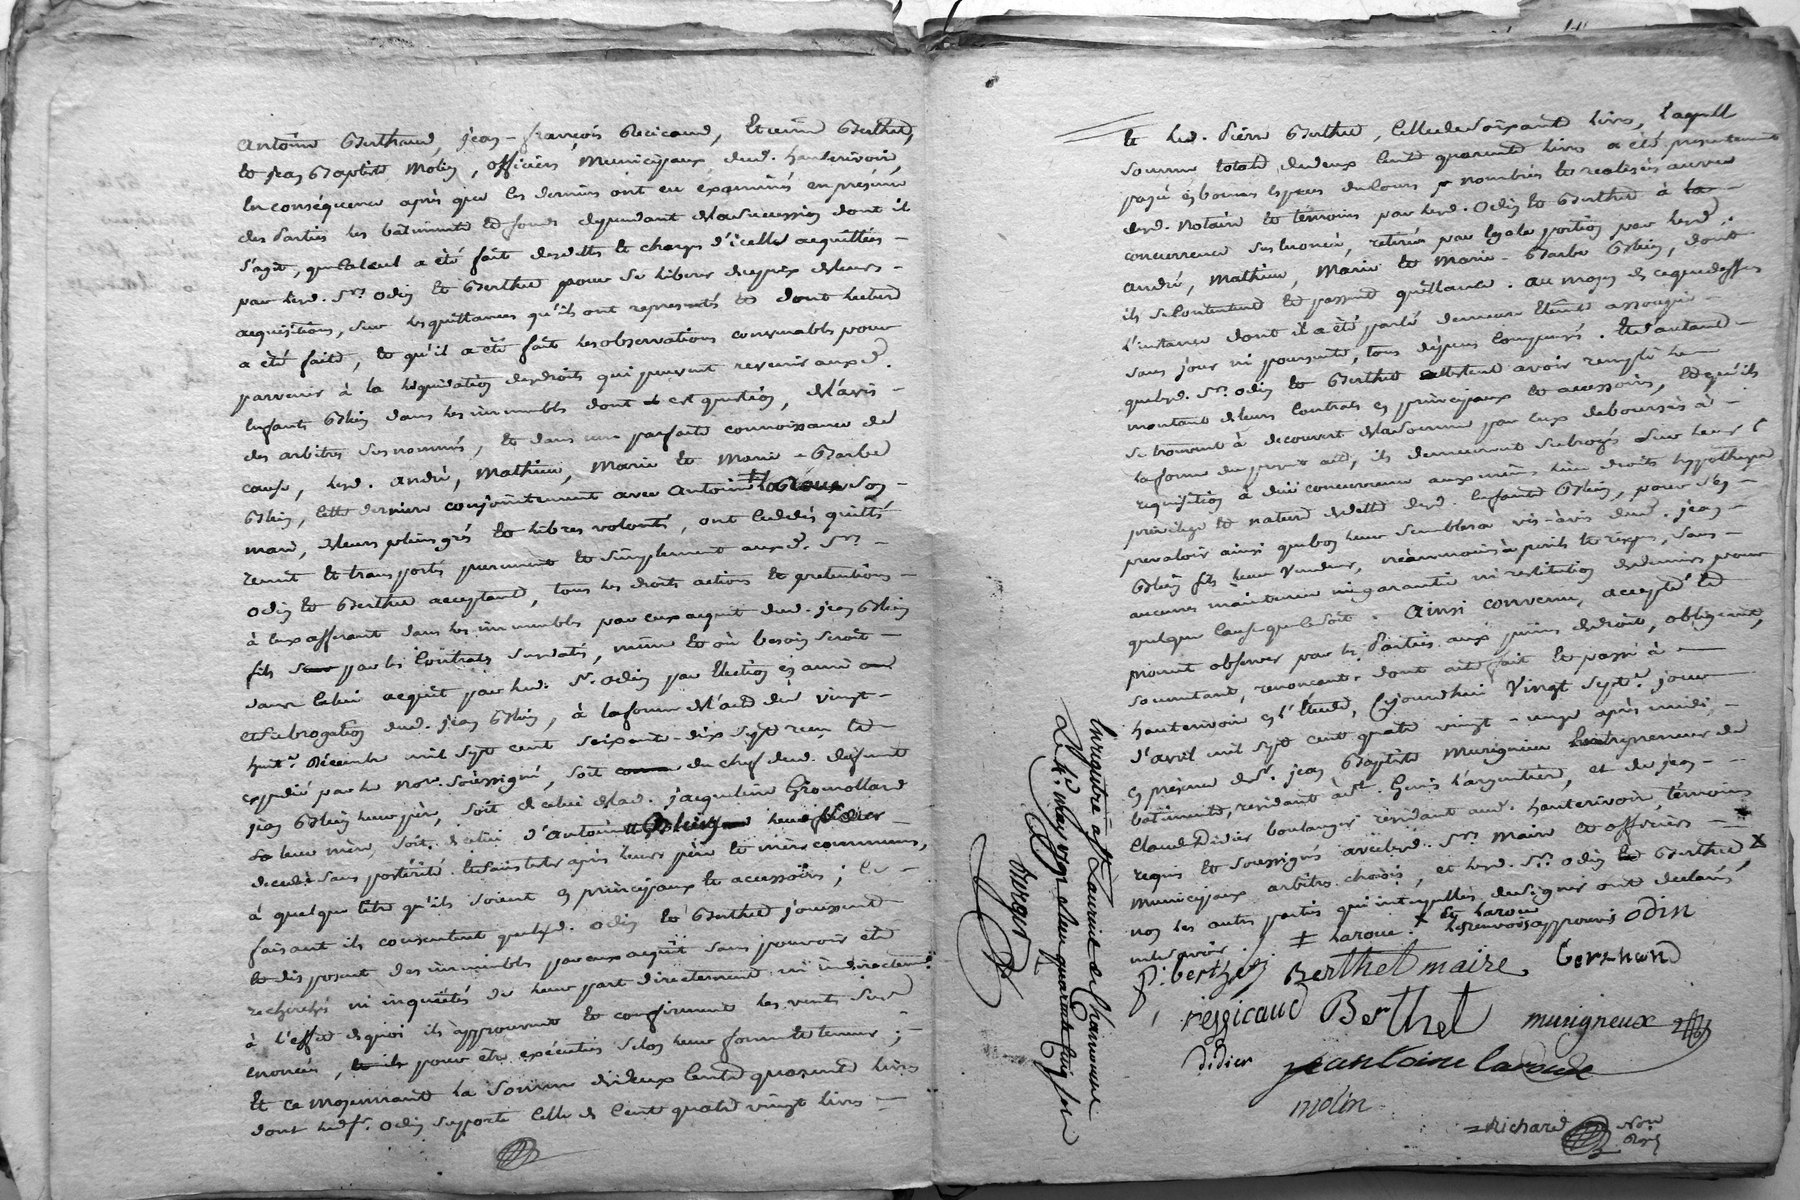 antoine Berthaud, jean-françois Recicaud, Etienne Berthet,
et jean Baptiste Molin, officiers municipaux dud. hauterivoir,
En conséquence après que les derniers ont eu éxaminés en présence
des Parties les bâtiments et fonds dépendant de la succession dont il
s'agit, que calcul a été fait des dettes et charges d'icelles acquittées
par lesd. Srs. odin et Berthet pour se liberer du prix de leurs
acquisitions, sur les quittances qu'ils ont representés et dont lecture
a été faite, et qu'il a été fait les observations convenables pour
parvenir à la liquidation des droits qui peuvent revenir auxd.
Enfants Blein dans les immeubles dont est question, de l'avis
des arbitres susnommés, et dans une parfaite connoissance de
cause, lesd. andré, Mathieu, Marie et Marie-Barbe
Blein, cette derniere conjointement avec antoine laroue son
mari, de leurs pleins grés et libres volonté, ont cedés quitté
remit et transporté purement et simplement auxd. Srs.
odin et Berthet acceptant, tous les droits actions et pretentions
à eux afferant dans les immeubles par eux acquit dud. jean Blein
fils par les Contrats susdatés, même et où besoin seroit
dans celui acquit par led. Sr. odin par Election en ami
et subrogation dud. jean Blein, à la forme de l'acte du vingt
huit Xe. décembre mil sept cent soixante-dix sept reçu et
expedié par le nore. soussigné, soit du chef dud. defunt
jean Blein leur père, soit de celui de lad. jacqueline Gromollard
sa leur mère, soit de celui d'antoine Blein leur frere
decedé sans postérité et sans tester après leurs père et mère communs,
à quelque titre qu'ils soient en principaux et accessoires; ce
faisant ils consentent que lesd. odin et Berthet jouissent
et disposent des immeubles par eux acquit sans pouvoir être
recherchés ni inquiétés de leur part directement ni indirectement
à l'effet de quoi ils approuvent et confirment les vents sus
énoncés, pour être exécutées selon leur forme et teneur;
Et ce moyennant la somme de deux Cents quarente livres
dont led. Sr. odin supporte celle de Cent quatre vingt livres
et led. Pierre Berthet, celle de soixante livres, laquelle
somme totale de deux cent quarente livres a été presentement
payé en bonnes especes du Cours nombrés et realisés au vu
desd. notaire et témoins par lesd. odin et Berthet à
concurrence sus énoncé, retirée par egale portion par lesd.
andré, Mathieu, Marie et Marie-Barbe Blein, dont
ils se contentent et passent quittance. au moyen de ce que dessus
l'instance dont il a été parlé demeure Eteinte assoupie
sans jour ni poursuite, tous dépens compensés. Et d'autant
que lesd. Srs. odin et Berthet attestent avoir remplis le
montant de leurs Contrats en principaux et accessoires, et qu'ils
se trouvent à decouvert de la somme par eux deboursés à
la forme du present acte, ils demeurent subrogés sur leur
requisition à due concurrence aux mêmes lieu droits hypotheque
privilege et nature de dette desd. Enfants Blein, pour s'en
prevaloir ainsi que bon leur semblera vis-àvis dud. jean
Blein fils leur Vendeur, néanmoins à perils et risques, sans
aucunes maintenue ni garantie ni restitution de deniers pour
quelque cause que ce soit. Ainsi convenu, accepté et
promit observer par les Parties aux peines de droit, obligeant,
soumettant, renonçant dont acte fait et passé à
hauterivoir en l'Etude, Cejourdhui Vingt Septe. jour
d'avril mil sept cent quatre vingt-onze après midi,
en présence de Sr. jean Baptiste Murigneux Entrepreneur de
bâtiments, residant à St. Genis l'argentière, et de jean
Claude Didier boulanger residant aud. hauterivoir, témoins
requis et soussignés avec lesd. Srs. maire et officiers
municipaux arbitres choisis, et lesd. Sr. odin et Berthet, X
non les autres parties qui interpellés de signer ont declarés
ne le savoir. ‡ laroue. X et laroue les renvois approuvés odin
p. berthet Berthet maire Berthaud
ressicaud Berthet murigneux
didier jean antoine laroue
molin
Richard Nore
Roy.
Enregistré à St. Laurent de Chamousset
Le 4e. may 1791 reçu quarante cinq sols
Bergin